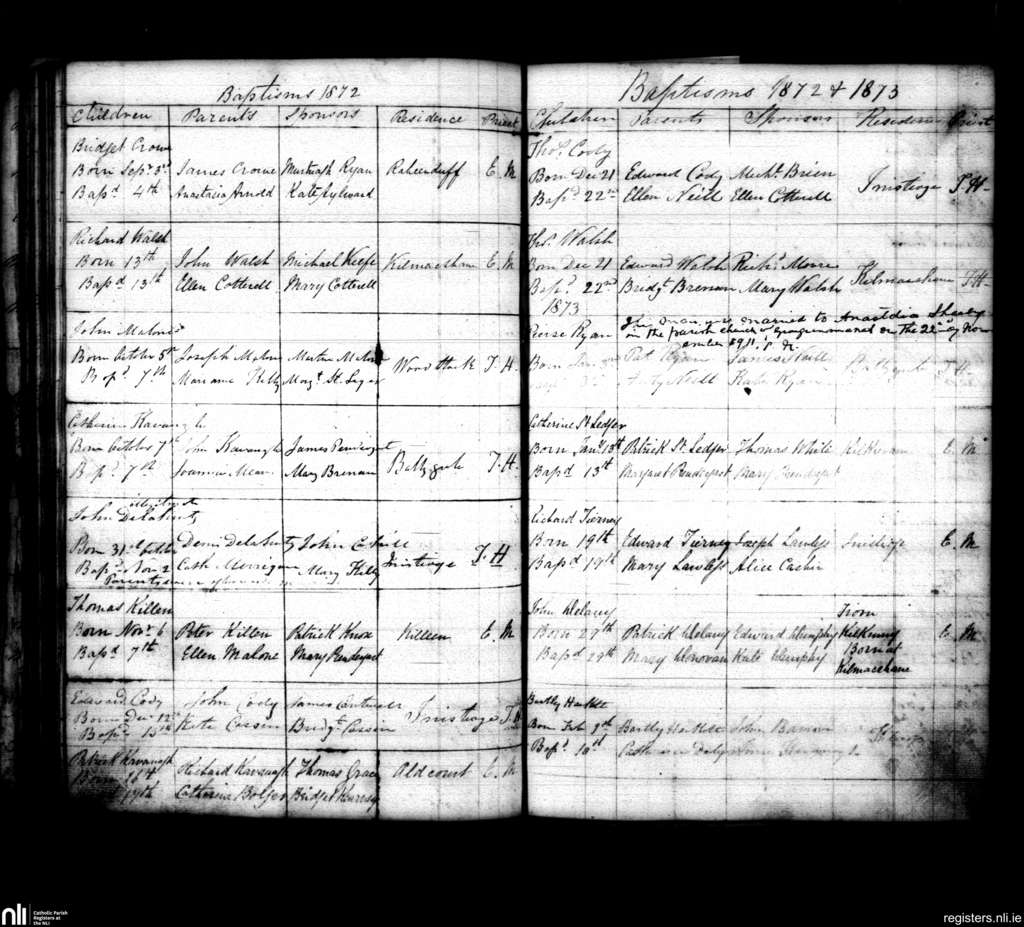 Baptisms 1872
Children Parents Sponsors Residence Priest
Bridget Crowe
Born Sepr 3rd James Crowe Murtagh Ryan Raheenduff E. M
Bapd 4th Anastasia Arnold Kate Aylward
Richard Walsh
Born 13th John Walsh Michael Keefe Kilmacshane E. M
Bapd 13th Ellen Cotterell Mary Cotterell
John
Born October 5th Joseph Martin Woodstock T. H.
Bapd 7th Marianne Kelly Margt St. Leger
Catherine Kavanagh
Born October 7th John Kavanagh James Pendergast
Bapd 7th Joanna Mary Brenan Ballygub T. H.
illegitimate
John Delahunty
Born 31st October Denis Delahunty John
Bapd Nov 2 Cath Merrigan Mary Kelly Inistioge T. H
Parents
Thomas Killen
Born Novr 6 Peter Killen Patrick Knox Killeen E. M
Bapd 7th Ellen Malone Mary Pendergast
Edward Cody John Cody James Cantwell
Born Dec 12th Kate Cassin Bridgt Cassin Inistioge T. H
Bapd 15th
Patrick Kavanagh
Born 16th Richard Kavanagh Thomas Grace Oldcourt E. M
19th Catherine Bolger Bridget Kearney
Baptisms 1872 & 1873
Children Parents Sponsors Residence Priest
Thos. Cody
Born Dec 21 Edward Cody Michl Brien Inistioge T. H.
Bapd 22nd Ellen Neill Ellen Cotterell
Thos. Walsh
Born Dec 21 Edward Walsh Richd Moore
Bapd 22nd Bridgt Brenan Mary Walsh Kilmacshane T. H
1873
Pierse Ryan was married to Anastatia
in the parish church of on the 22nd of Nov
ember 1911.
Born Jan Pat Ryan James Neill Ballygub T. H.
3rd Neill Kate Ryan
Catherine St Ledger
Born Jany 13th Patrick St Ledger Thomas White E. M
Bapd 13th Margaret Pendergast Mary Pendergast
Richard Tierney
Born 19th Edward Tierney Joseph Lawless Inistioge E. M
Bapd 19th Mary Lawless Alice
John Delany From
Born 27th Patrick Delany Edward Dunphy Kilkenny E. M
Bapd 29th Mary Donovan Kate Dunphy Born at
Kilmacshane
Bartly
Born Feb 9th Bartly John
Bapd 10th Catherine Daly
nli
Catholic Parish
Registers at
the NLI
registers.nli.ie